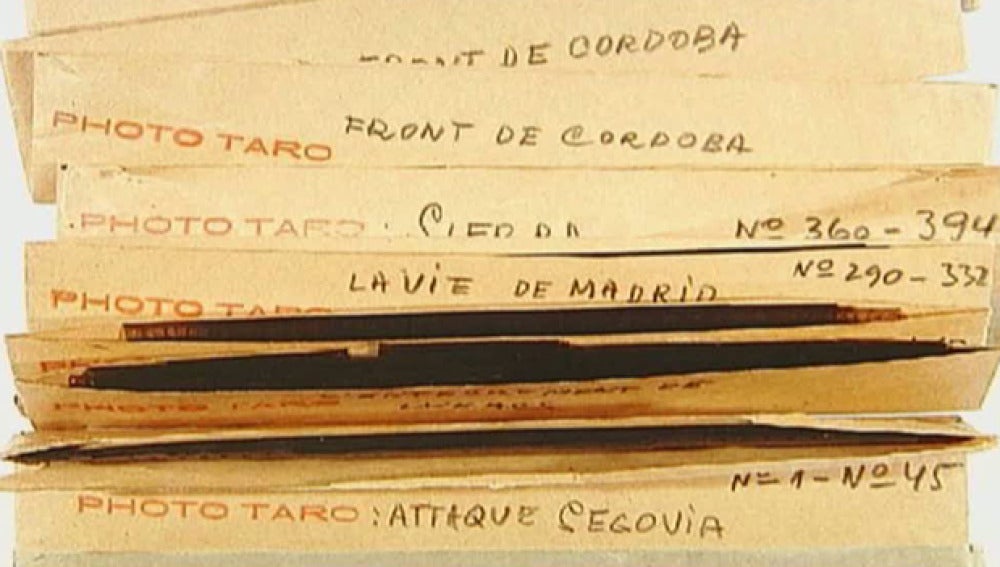 DE CORDOBA
PHOTO TARO FRONT DE CORDOBA
PHOTO TARO : Nº 360 - 394
Nº 290 - 332
PHOTO TARO LA ViE DE MADRiD
PHOTO TARO DE
Nº 1 - Nº 45
PHOTO TARO : ATTAQUE SEGOViA